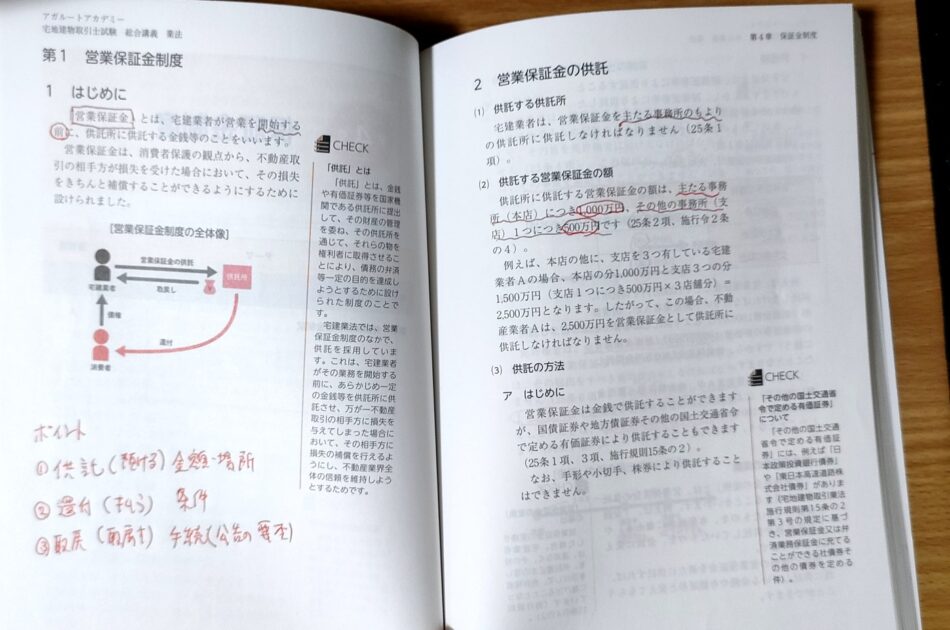 アガルートアカデミー
宅地建物取引士試験 総合講義 業法
第1 営業保証金制度
1 はじめに
営業保証金 とは、宅建業者が営業を開始する
前に、供託所に供託する金銭等のことをいいます。
営業保証金は、消費者保護の観点から、不動産取
引の相手方が損失を受けた場合において、その損失
をきちんと補償することができるようにするために
設けられました。
[営業保証金制度の全体像]
営業保証金の供託
供託所
取戻し
宅建業者
債権
還付
消費者
CHECK
「供託」とは
「供託」とは、金銭
や有価証券等を国家機
関である供託所に提出
して、その財産の管理
を委ね、その供託所を
通じて、それらの物を
権利者に取得させるこ
とにより、債務の弁済
等一定の目的を達成し
ようとするために設け
られた制度のことで
す。
宅建業法では、営業
保証金制度のなかで、
供託を採用していま
す。これは、宅建業者
がその業務を開始する
前に、あらかじめ一定
の金銭等を供託所に供
託させ、万が一不動産
取引の相手方に損失を
与えてしまった場合に
おいて、その相手方に
損失の補償を行えるよ
うにし、不動産業界全
体の信頼を維持しよう
とするためです。
ポイント
①供託(預ける) 金額・場所
②還付(支払う) 条件
③取戻(取戻す) 手続(公告の要否)
第4章 保証金制度
2 営業保証金の供託
(1) 供託する供託所
宅建業者は、営業保証金を主たる事務所のもより
の供託所に供託しなければなりません(25条1
項)。
(2) 供託する営業保証金の額
供託所に供託する営業保証金の額は、主たる事務
所(本店)につき1,000万円、その他の事務所(支
店)1つにつき500万円です(25条2項、施行令2条
の4)。
例えば、本店の他に、支店を3つ有している宅建
業者Aの場合、本店の分1,000万円と支店3つの分
1,500万円(支店1つにつき500万円×3店舗分)=
2,500万円となります。したがって、この場合、不動
産業者Aは、2,500万円を営業保証金として供託所に
供託しなければなりません。
(3) 供託の方法
ア はじめに
営業保証金は金銭で供託することができます
が、国債証券や地方債証券その他の国土交通省令
で定める有価証券により供託することもできます
(25条1項、3項、施行規則15条の2)。
なお、手形や小切手、株券により供託すること
はできません。
CHECK
「その他の国土交通省
令で定める有価証券」
について
「その他の国土交通
省令で定める有価証
券」には、例えば「日
本政策投資銀行債券」
や「東日本高速道路株
式会社債券」がありま
す(宅地建物取引業法
施行規則第15条の2
第3号の規定に基づ
き、営業保証金又は弁
済業務保証金に充てる
ことができる社債券そ
の他の債券を定める
件)。